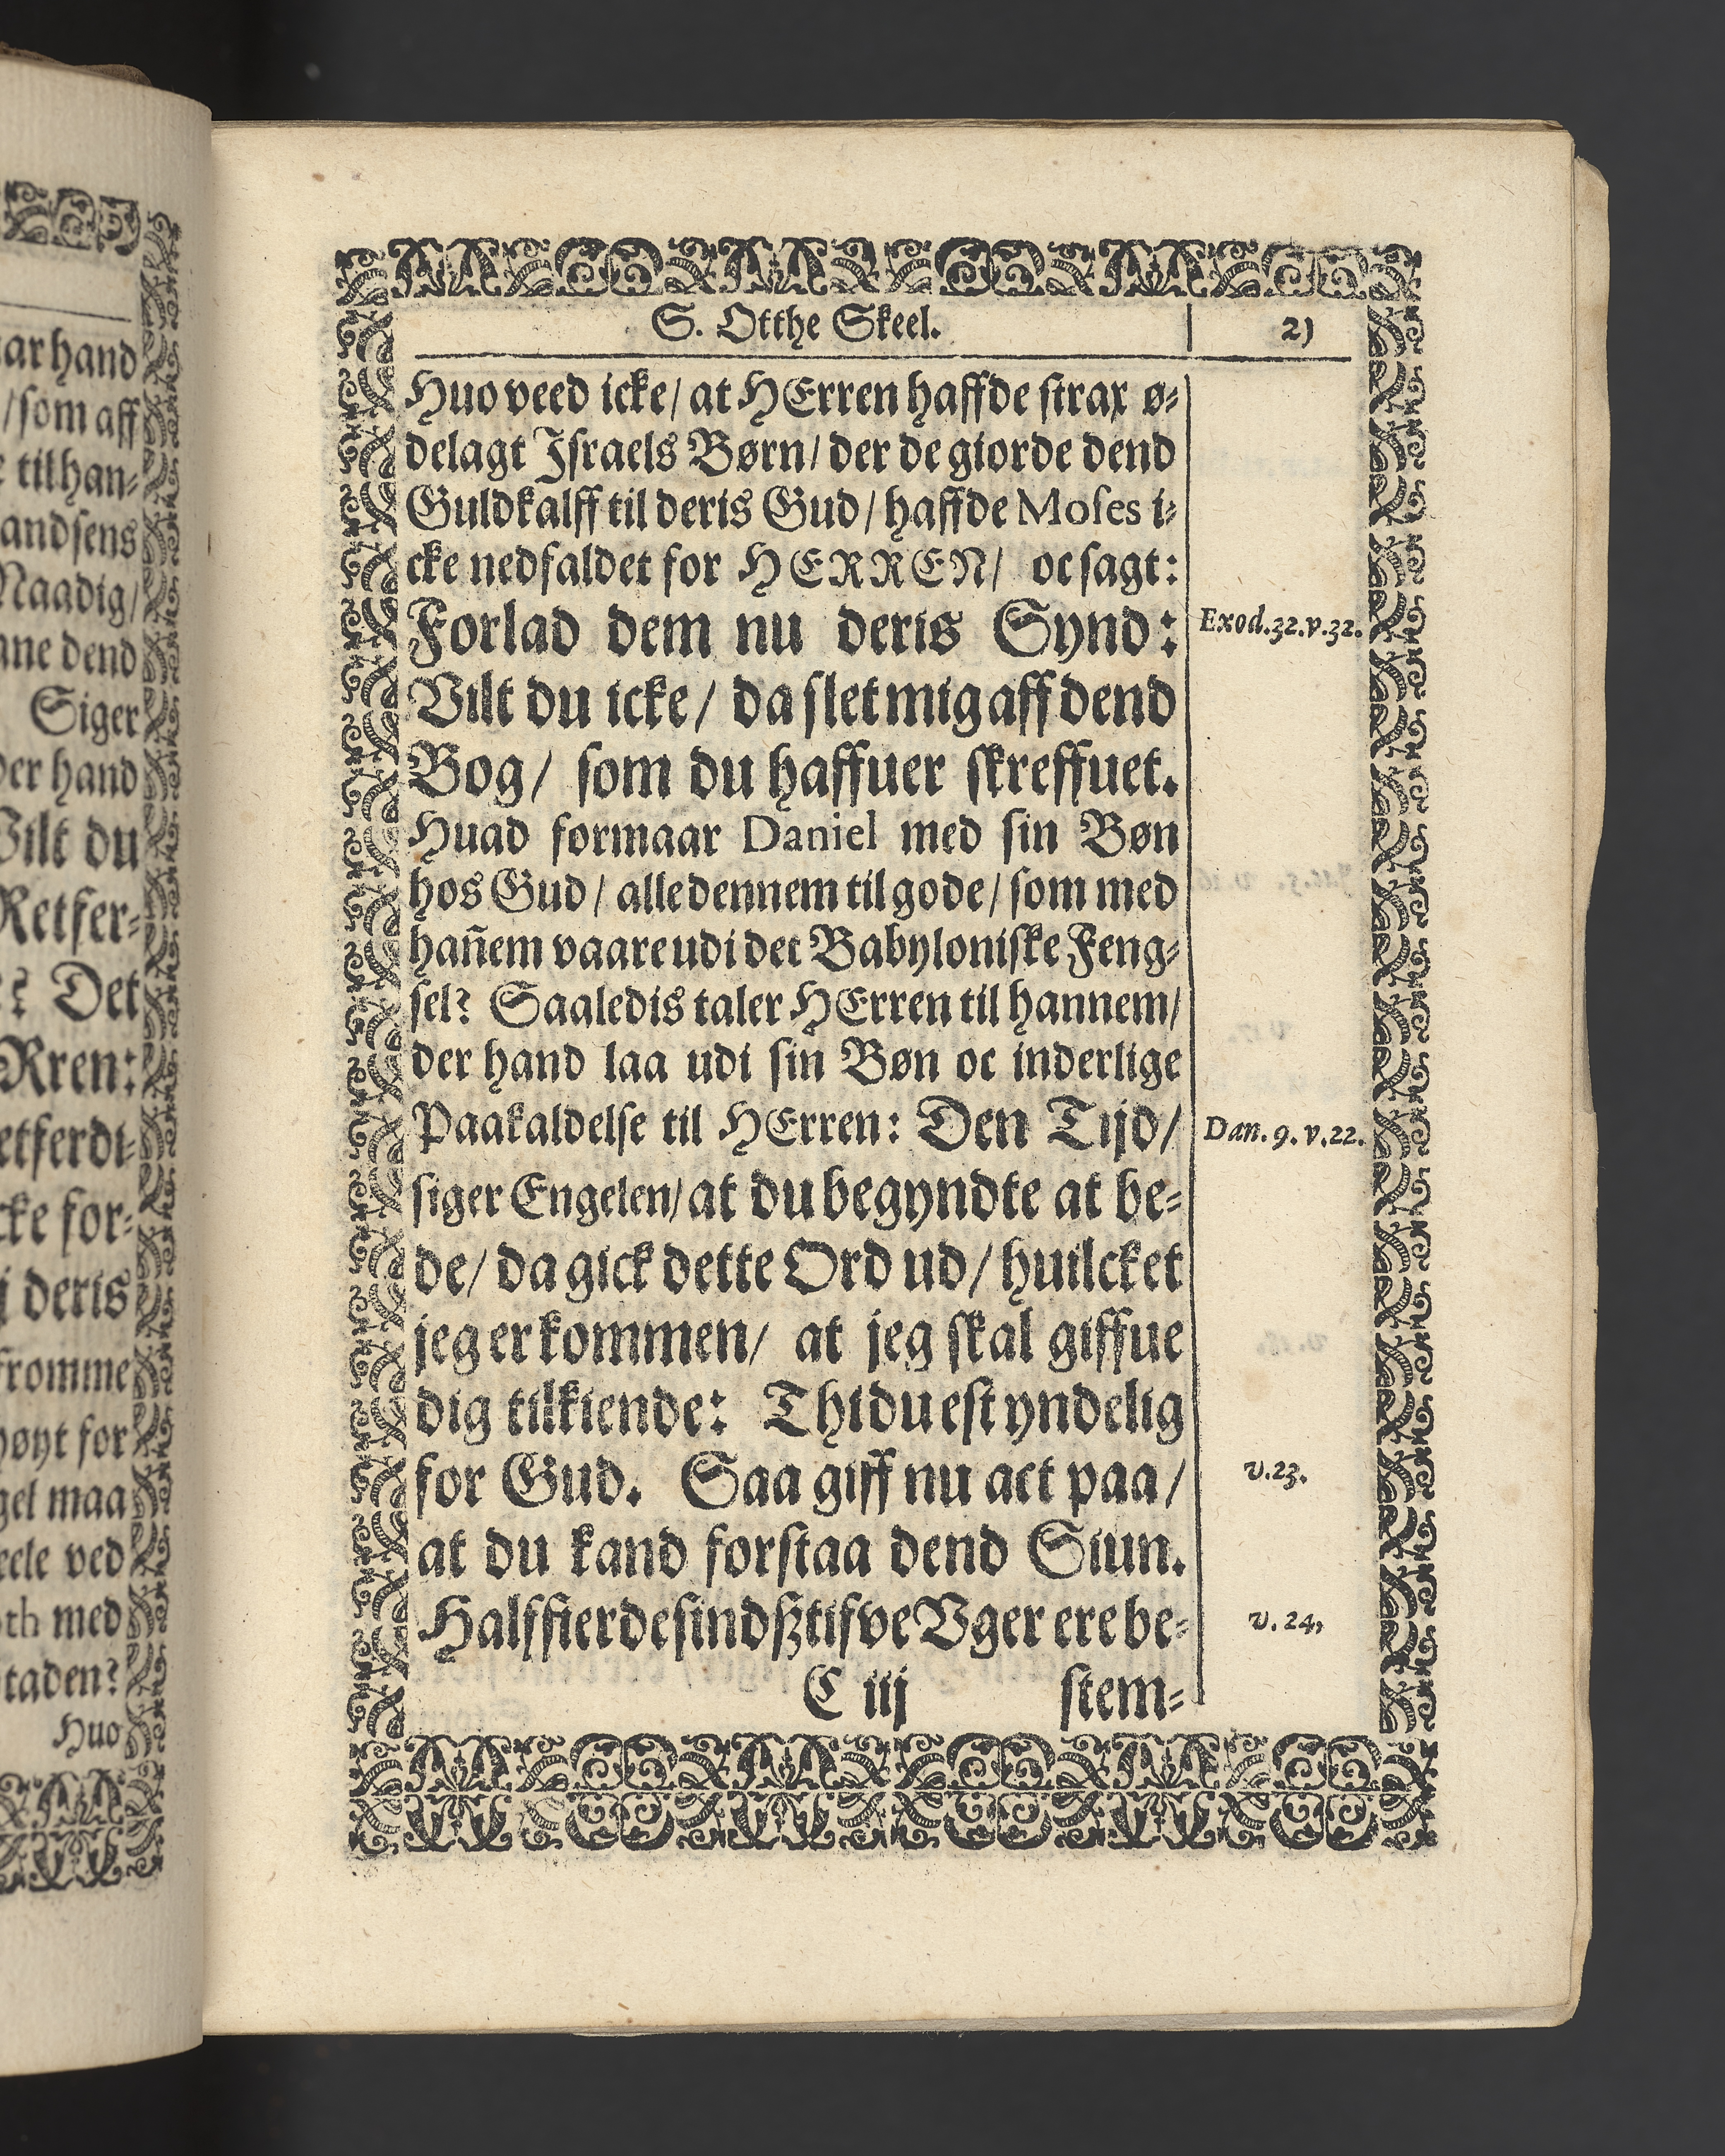 arhand
/som aff
tilhan-
andsens
Naadig/
dend
Siger
hand
Vilt du
Retfer-
Det
Rren:
etferdi-
for-
deris
fromme
for
maa
ved
med
Huo
S. Otthe Skeel. 21
Huo veed icke/ at HErren haffde strax ø-
delagt Israels Børn/ der de giorde dend
Guldkalff til deris Gud/ haffde Moses i-
cke nedfaldet for HERREN/ oc sagt:
Forlad dem nu deris Synd: Exod.32.v.32.
Vilt du icke/ da slet mig aff dend
Bog/ som du haffuer skreffuet.
Huad formaar Daniel med sin Bøn
hos Gud/ alle dennem til gode/ som med
hañem vaare udi det Babyloniske Feng-
sel? Saaledis taler HErren til hannem/
der hand laa udi sin Bøn oc inderlige
Paakaldelse til HErren: Den Tijd/ Dan. 9. v.22.
siger Engelen/ at du begyndte at be-
de/ da gick dette Ord ud/ huilcket
jeg er kommen/ at jeg skal giffue
dig tilkiende: Thi du est yndelig
for Gud. Saa giff nu act paa/ v.23.
at du kand forstaa dend Siun.
Halffierdesindsztifve Vger ere be- v. 24,
C iij stem-